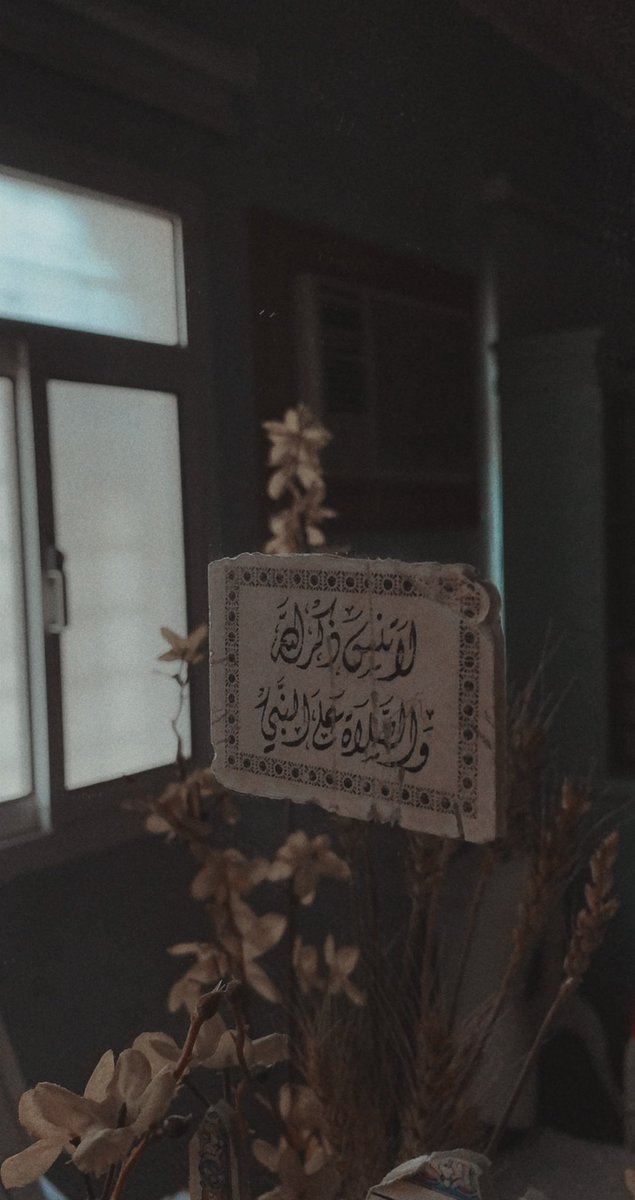 لَا تَنْسَ ذِكْرَ اللَّه
وَالصَّلَاةَ عَلَى النَّبِيِّ